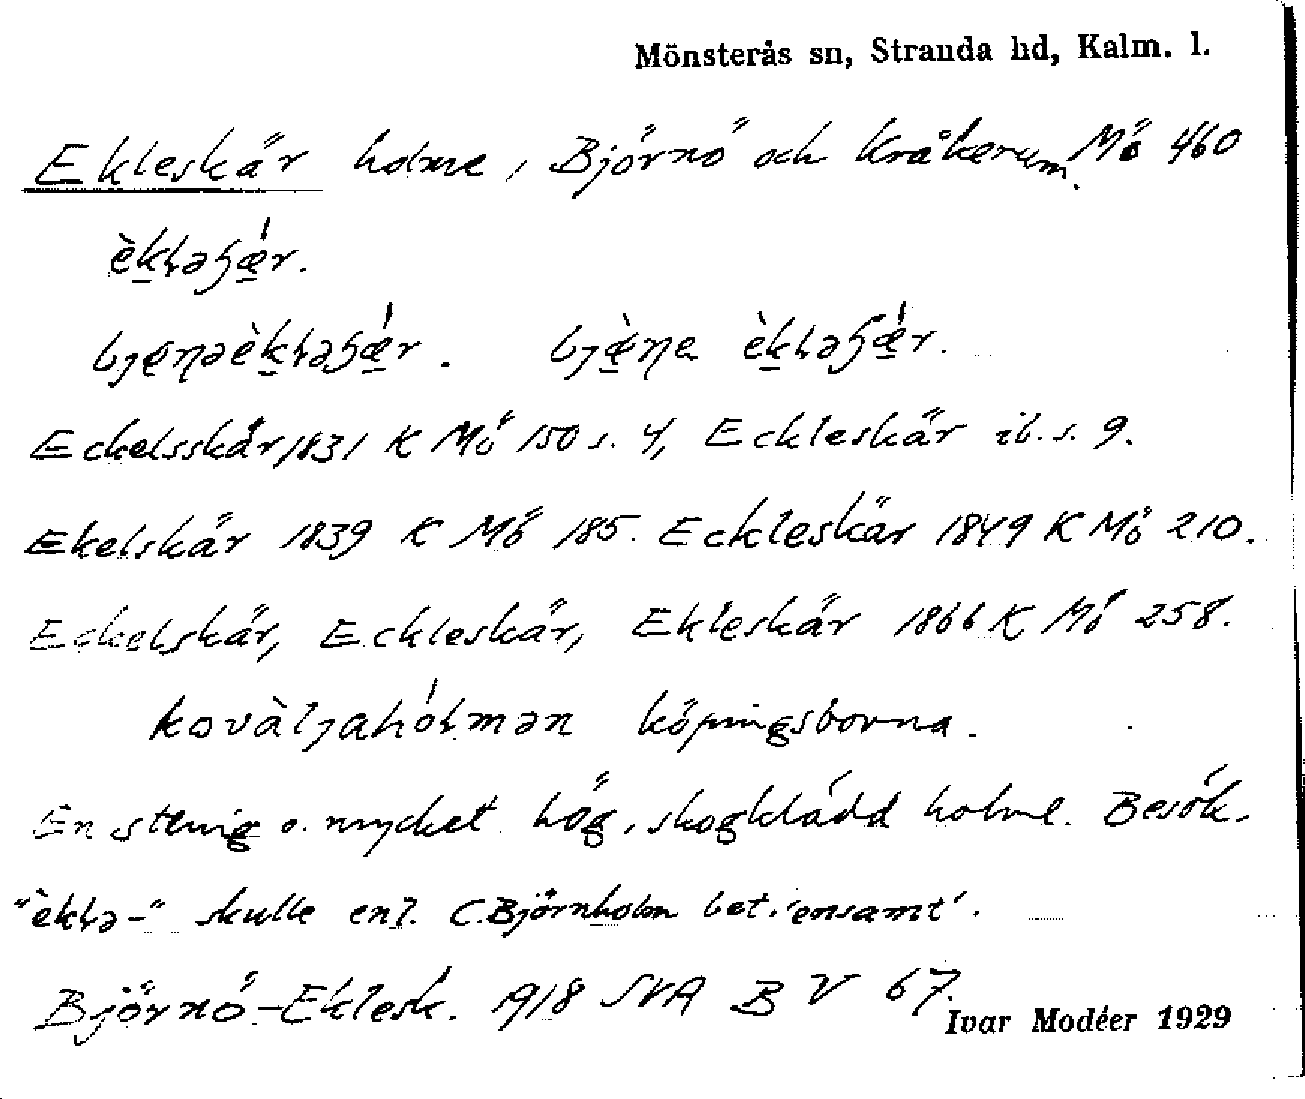 Mönsterås sn, Stranda hd, Kalm. l.
Ekleskär holme, Björnö och Kråkerum. Mö 460
èkləʃǽr.
bjønəèkləʃǽr. bjø̀ne èkləʃǽr.
Eckelsskär, 1831 K Mö 150 s. 4, Eckleskär ib. s. 9.
Ekelskär 1839 K Mö 185. Eckleskär 1849 K Mö 210.
Eckelskär, Eckleskär, Ekleskär 1866 K Mö 258.
kovàljahólmən köpingsborna.
En stenig o. mycket hög, skogklädd holme. Besök.
"èklə-" skulle enl. C. Björnholm bet. 'ensamt'.
Björnö-Eklesk. 1918 SNA B V 67.
Ivar Modéer 1929